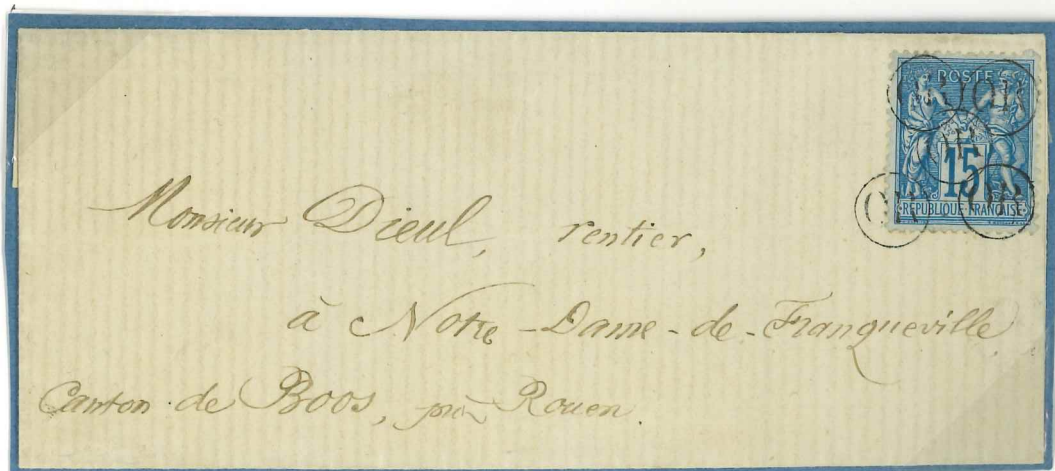 POSTE
OR OR
OR
15
OR OR
REPUBLIQUE FRANÇAISE
Monsieur Dieul, rentier,
à Notre-Dame-de-Franqueville
Canton de Boos, près Rouen.